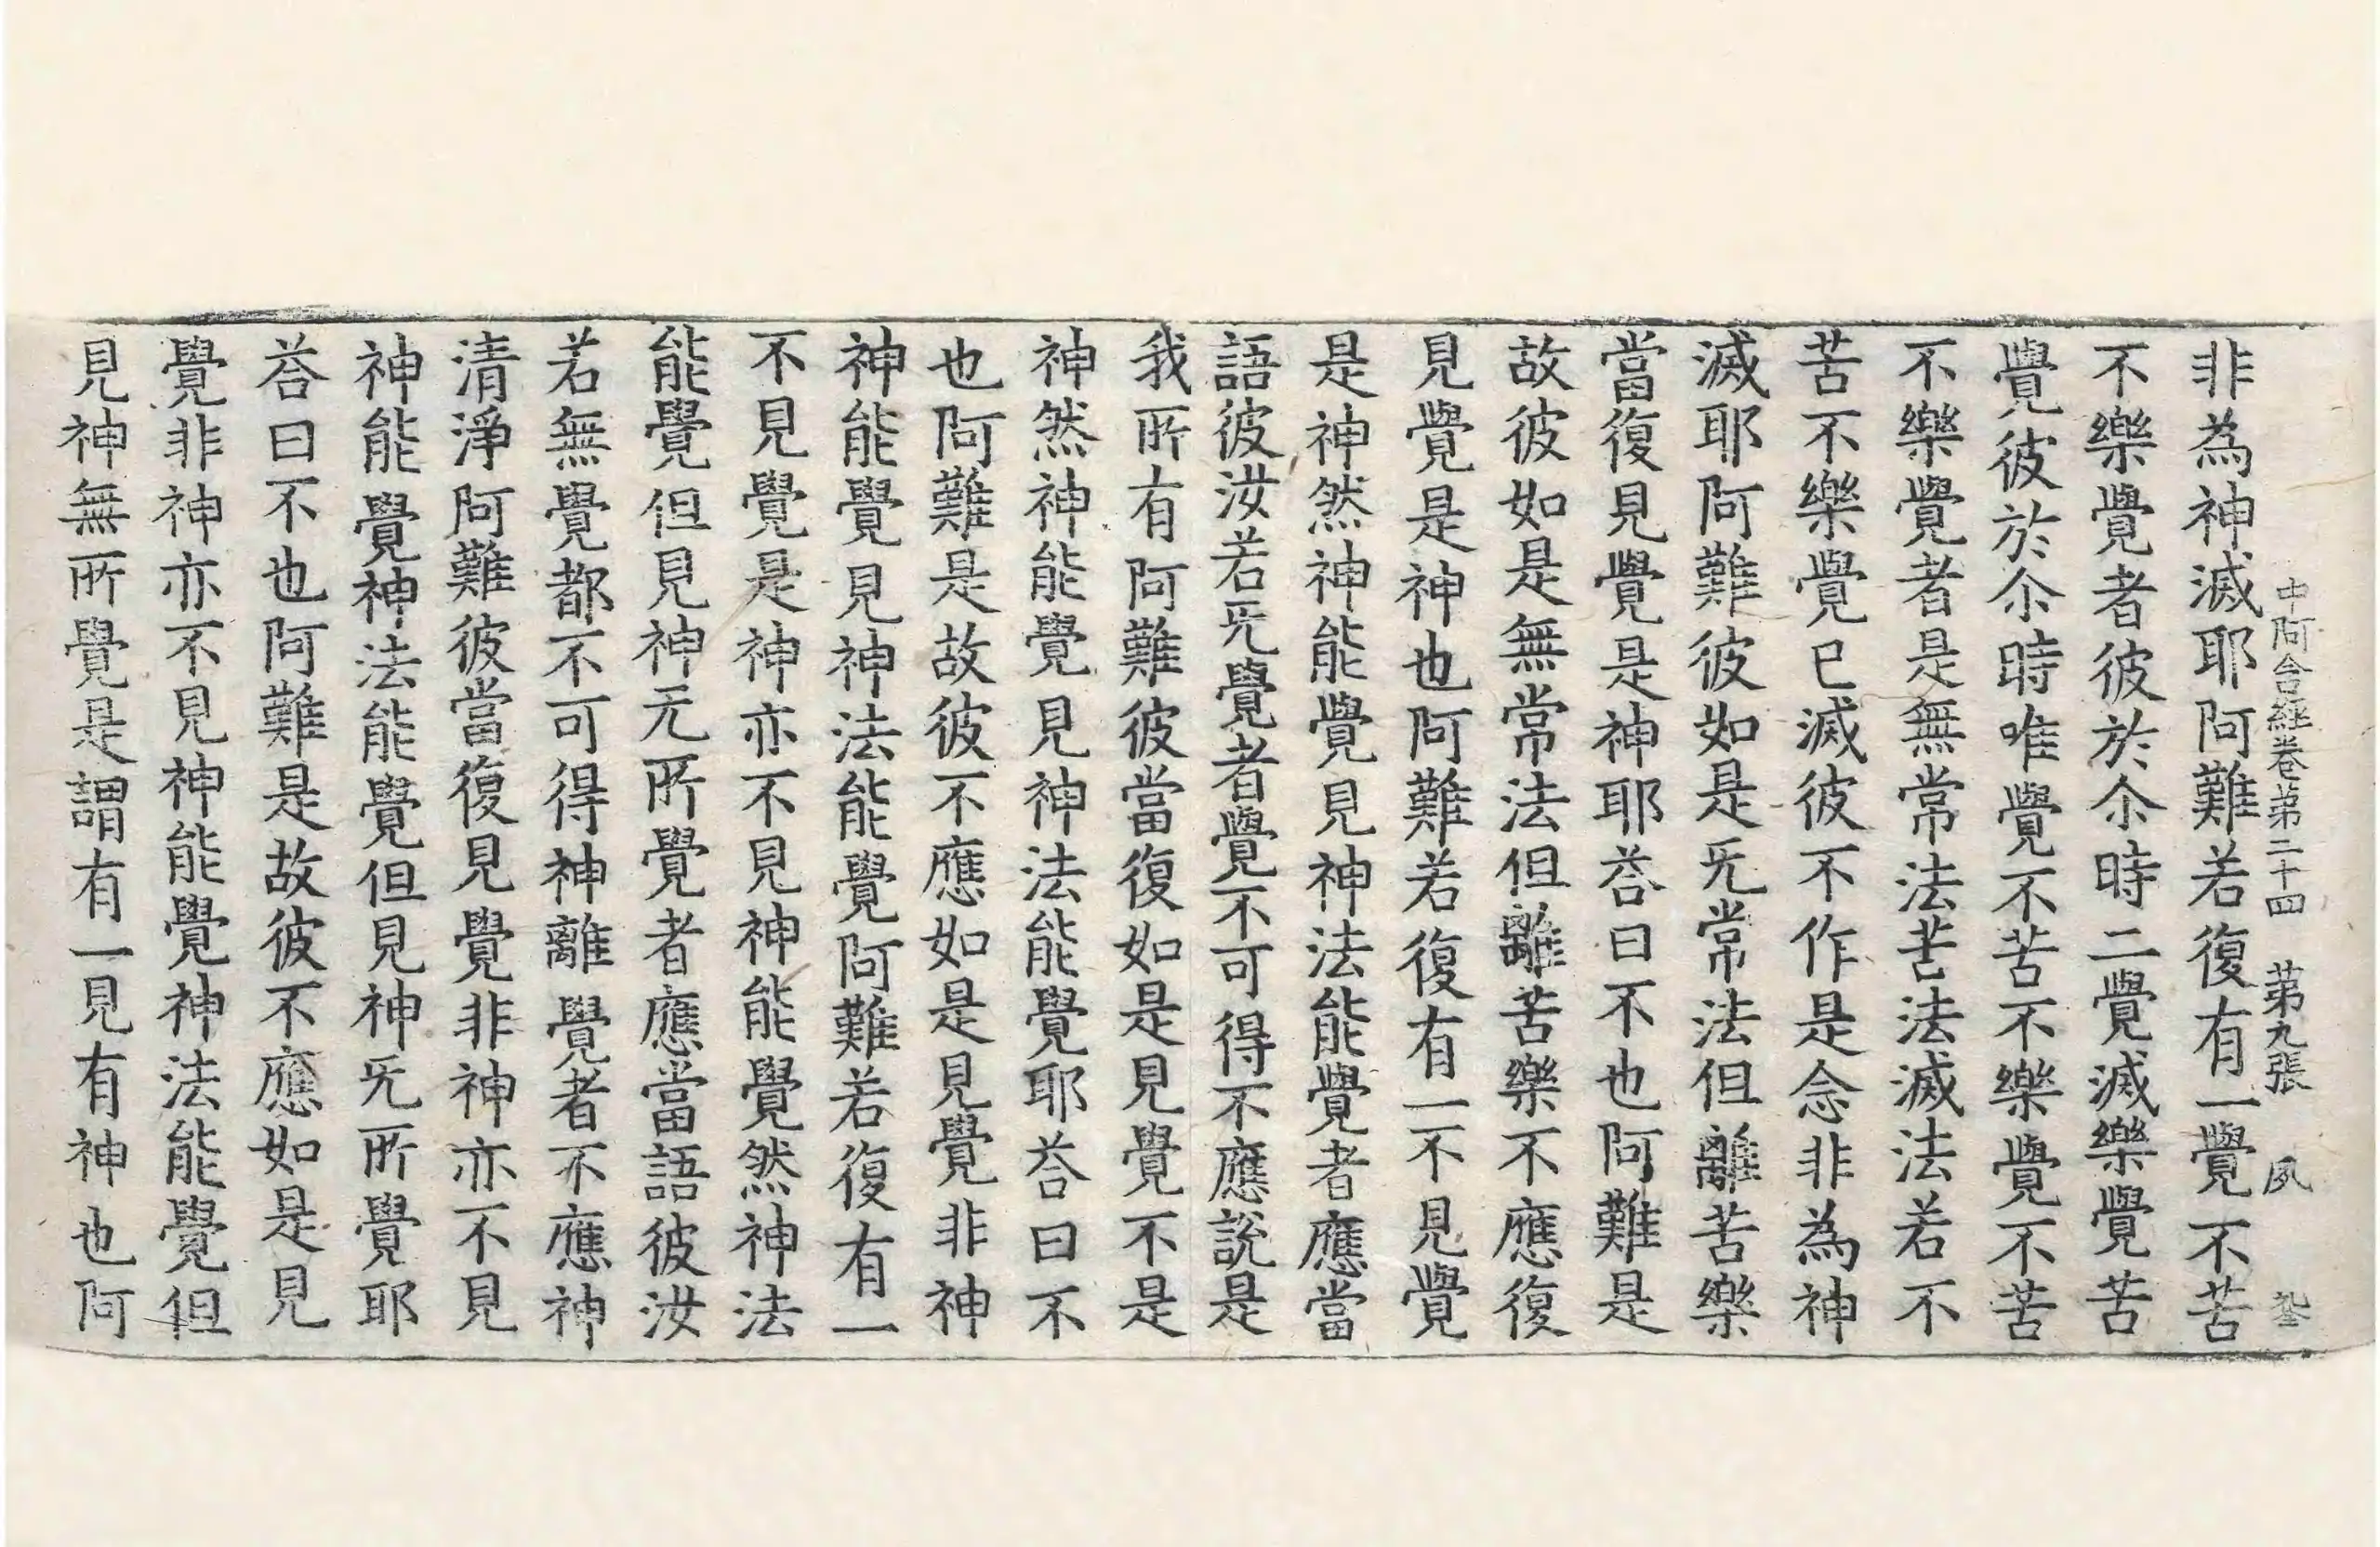 中阿含經卷第二十四　第九張　夙
非為神滅耶阿難若復有一覺不苦
不樂覺者彼於尒時二覺滅樂覺苦
覺彼於尒時唯覺不苦不樂覺不苦
不樂覺者是無常法苦法滅法若不
苦不樂覺已滅彼不作是念非為神
滅耶阿難彼如是旡常法但離苦樂
當復見覺是神耶荅曰不也阿難是
故彼如是無常法但離苦樂不應復
見覺是神也阿難若復有一不見覺
是神然神能覺見神法能覺者應當
語彼汝若旡覺者覺不可得不應說是
我所有阿難彼當復如是見覺不是
神然神能覺見神法能覺耶荅曰不
也阿難是故彼不應如是見覺非神
神能覺見神法能覺阿難若復有一
不見覺是神亦不見神能覺然神法
能覺但見神元所覺者應當語彼汝
若無覺都不可得神離覺者不應神
清淨阿難彼當復見覺非神亦不見
神能覺神法能覺但見神旡所覺耶
荅曰不也阿難是故彼不應如是見
覺非神亦不見神能覺神法能覺但
見神無所覺是謂有一見有神也阿